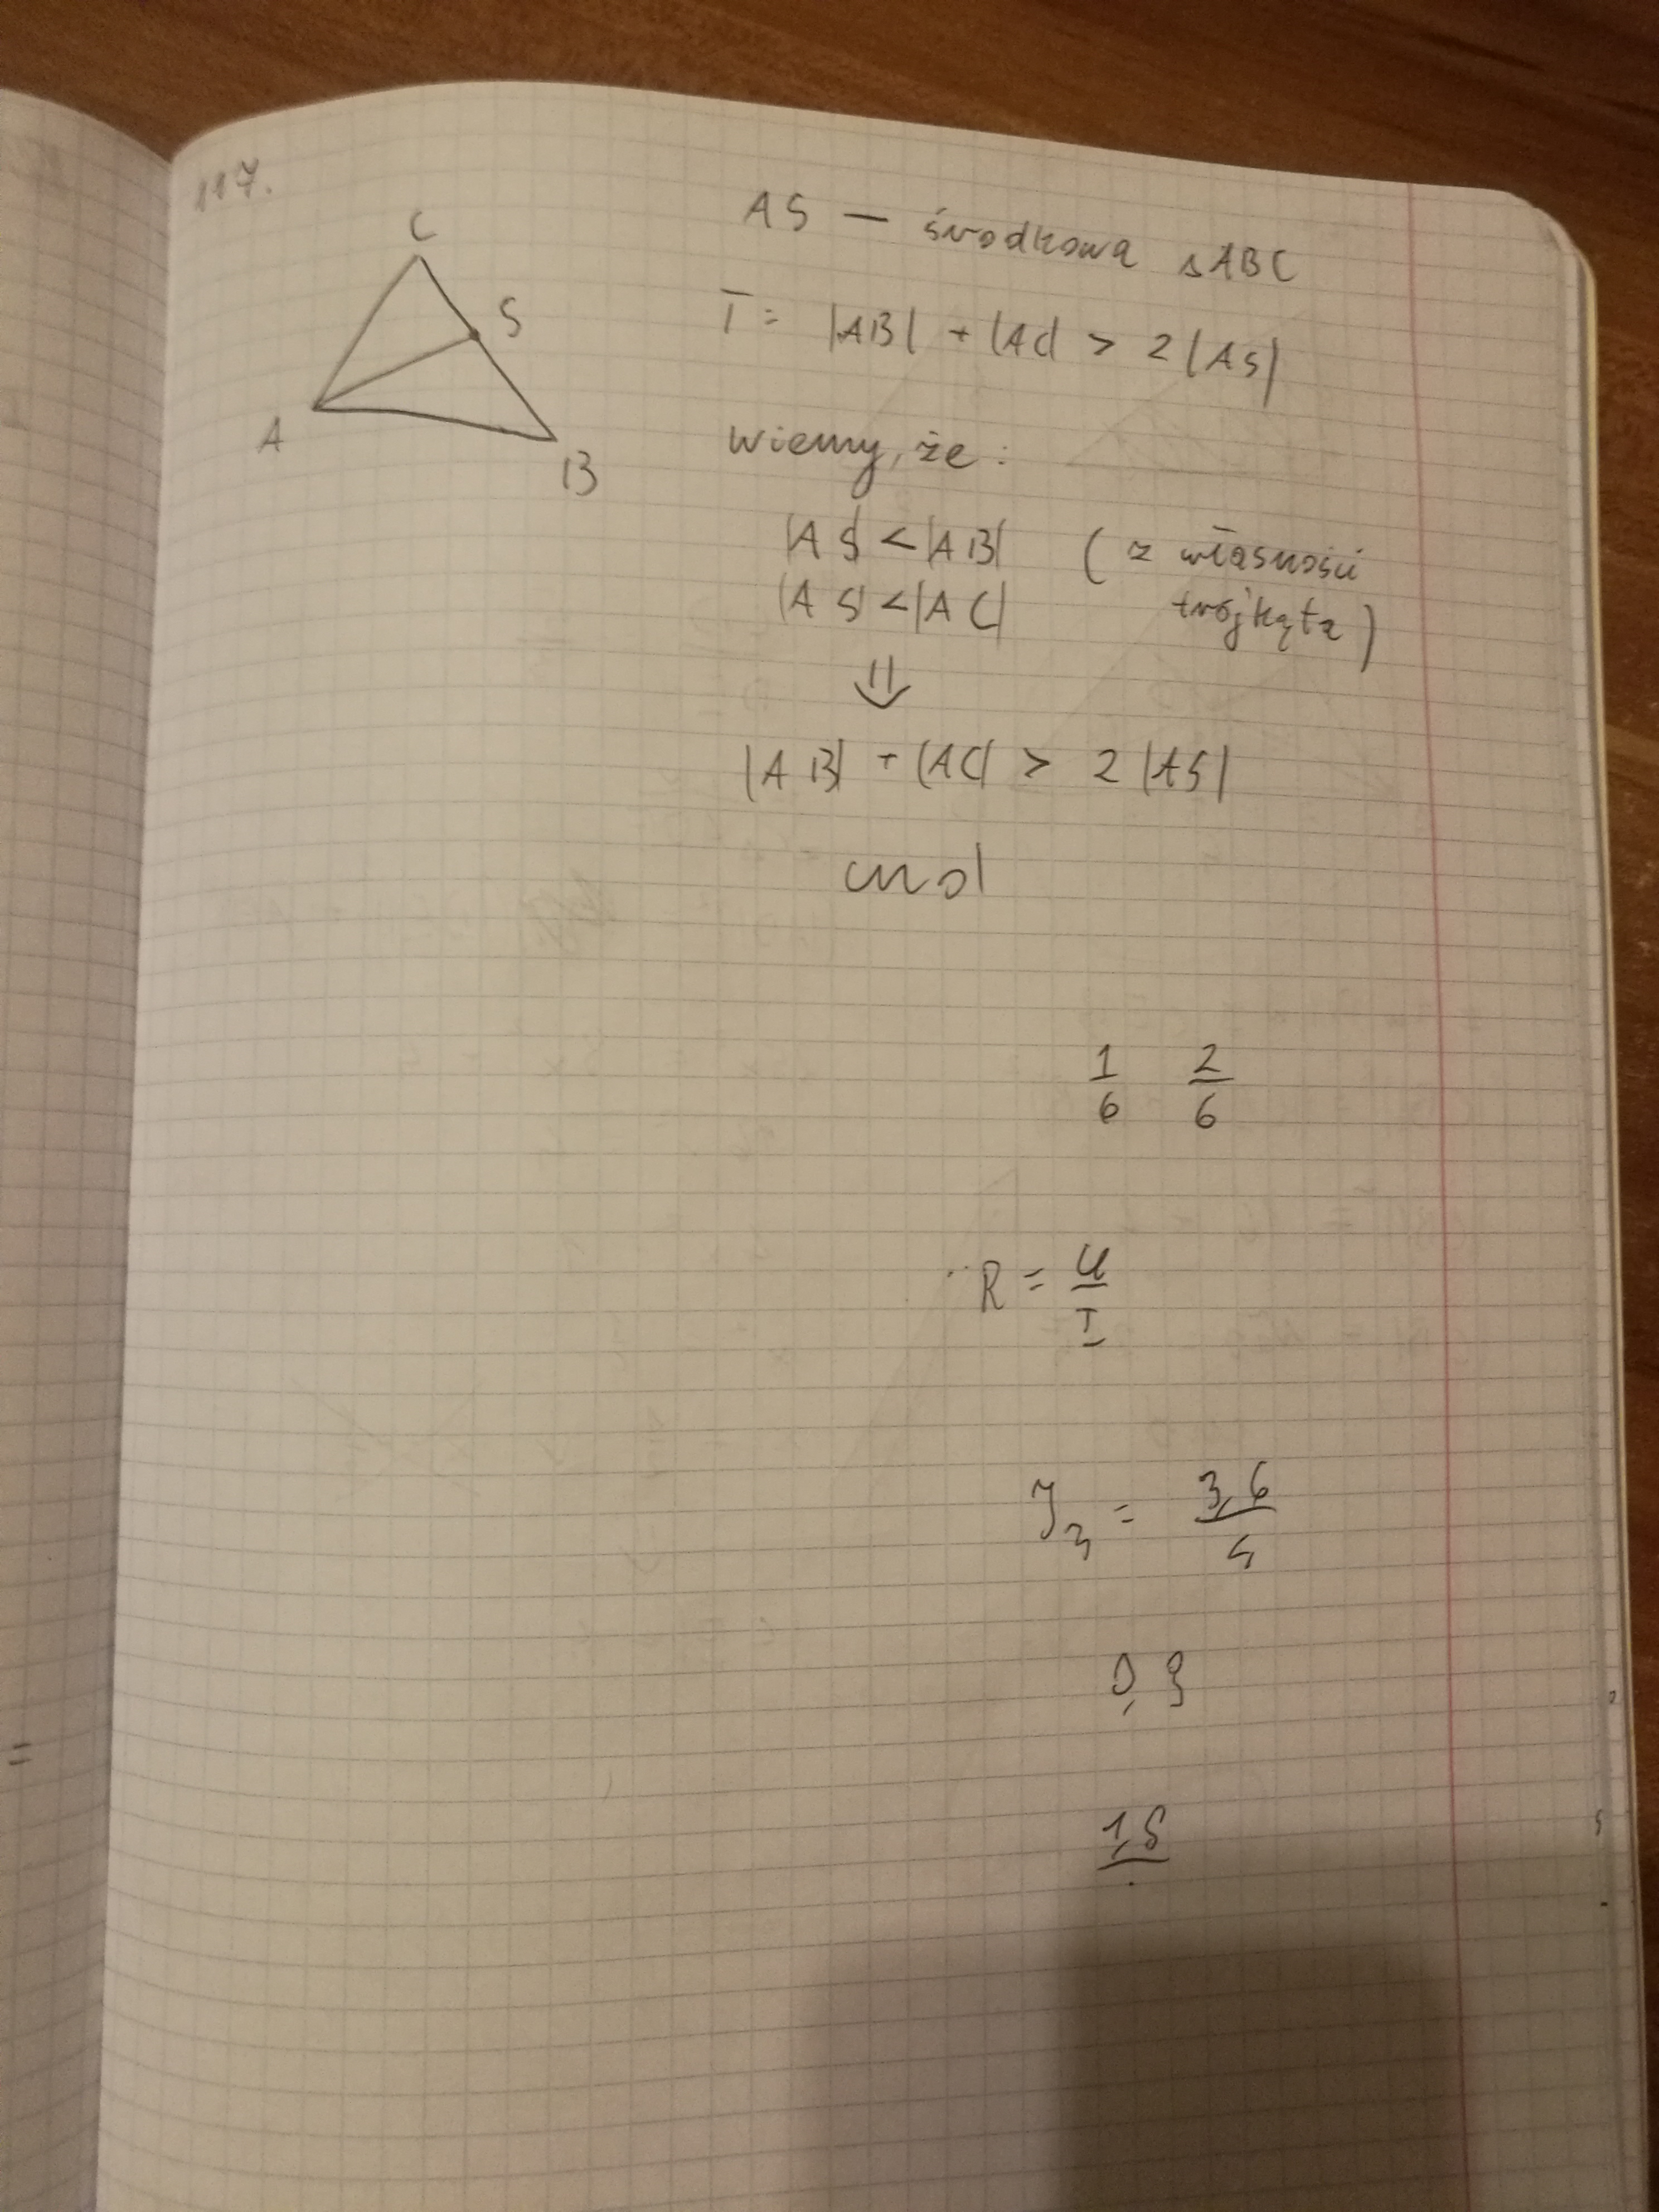 117.
C
S
A
B
AS — środkowa △ABC
T = |AB| + |AC| > 2|AS|
Wiemy, że :
|AS| < |AB| ( z własności
|AS| < |AC| trójkąta )
⇓
|AB| + |AC| > 2 |AS|
cnd
1/6 2/6
R = U/I
I₃ = 3,6/4
0,9
1,8
=